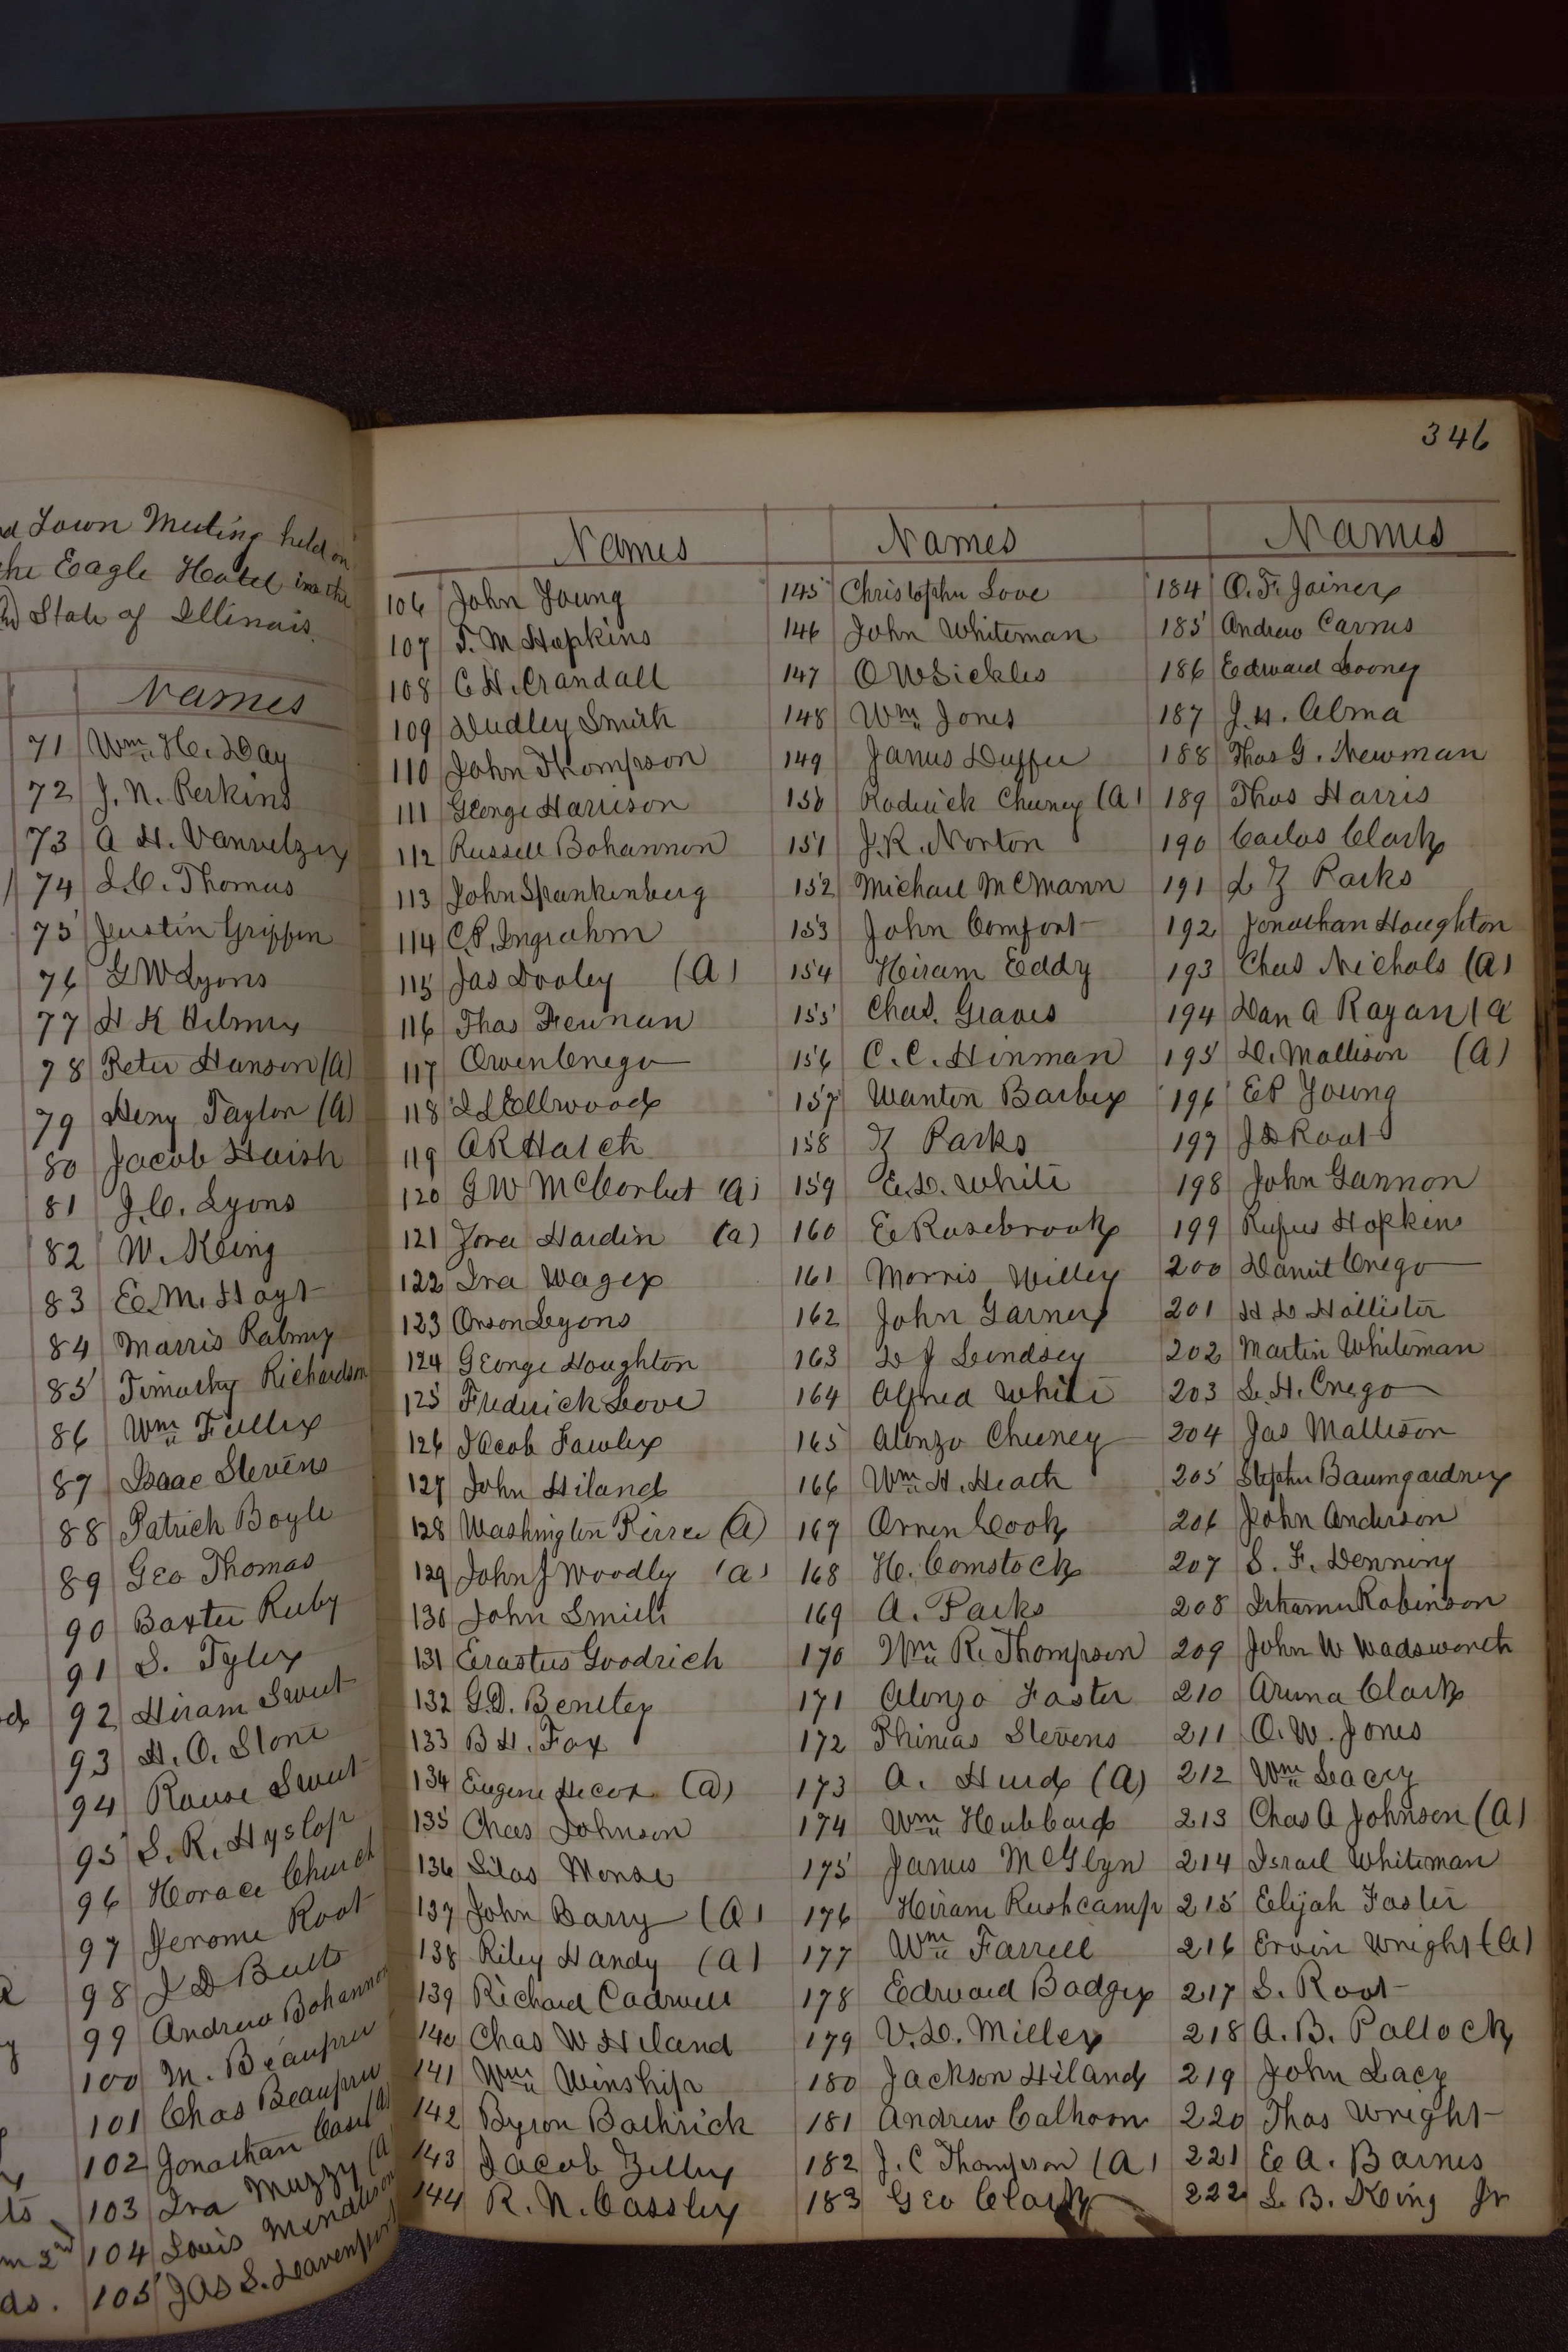 Town Meeting held on
the Eagle Hotel in the
State of Illinois.
Names
71 Wm. H. Day
72 J. N. Perkins
73 A H. Vanvelzer
74 L.C. Thomas
75 Justin Griffin
76 G W Lyons
77 H K
78 Peter Hanson (A)
79 Heny Taylor (A)
80 Jacob Haish
81 J. C. Lyons
82 W. King
83 E. M. Hoyt
84 Morris
85 Timothy Richardson
86 Wm Fuller
87 Isaac Stevens
88 Patrick Boyle
89 Geo Thomas
90 Baxter Ruby
91 S. Tyler
92 Hiram Sweet
93 H. O. Stone
94 Rouse Sweet
95 S. R. Hyslop
96 Horace Church
97 Jerome Root
98 J D Butts
99 Andrew Bohannon
100 M. Beaupre
101 Chas Beaupre
102 Jonathan Case (A)
103 Ira Muzzy (A
104 Louis
105 Jas S. Leavenport
346
Names
106 John Young
107 T. M Hopkins
108 C H. Crandall
109 Dudley Smith
110 John Thompson
111 George Harrison
112 Russell Bohannon
113 John Spankenberg
114 C.P. Ingrahm
115 Jas Dooley (A)
116 Thos Feenan
117 Owen Crego
118 I L Ellwood
119 A R Hatch
120 G W McCorbet (A)
121 Zora Hardin (a)
122 Ira Wager
123 Orson Lyons
124 George Houghton
125 Frederick Love
126 Jacob Fawler
127 John Hiland
128 Washington Pierce (A)
129 John J Woodly (a)
130 John Smith
131 Erastus Goodrich
132 G.D. Bentley
133 B H. Fox
134 Eugene Hecox (a)
135 Chas Johnson
136 Silas Morse
137 John Barry (A)
138 Riley Handy (A)
139 Richard Cadwell
140 Chas W Hiland
141 Wm Winship
142 Byron Bathrick
143 Jacob Zeller
144 R. N. Cassley
Names
145 Christopher Love
146 John Whiteman
147 O W Sickles
148 Wm Jones
149 James Duffee
150 Roderick Cheney (A)
151 J. R. Norton
152 Michael McMann
153 John Comfort
154 Hiram Eddy
155 Chas. Graves
156 C. C. Hinman
157 Wanton Barber
158 Z Parks
159 E. D. White
160 E Rosebrook
161 Morris Willey
162 John Garner
163 D J Lindsey
164 Alfred White
165 Alonzo Cheeney
166 Wm H. Heath
167 Orren Cook
168 H. Comstock
169 A. Parks
170 Wm R. Thompson
171 Alonzo Foster
172 Phineas Stevens
173 A. Hurd (A)
174 Wm Hubbard
175 James McGlyn
176 Hiram Rushcamp
177 Wm Farrell
178 Edward Badger
179 V. D. Miller
180 Jackson Hiland
181 Andrew Calhoon
182 J. C Thompson (A)
183 Geo Clark
Names
184 O. F. Joiner
185 Andrew Carnes
186 Edward Looney
187 J. H. Alma
188 Thos G. Newman
189 Thos Harris
190 Carlos Clark
191 L Z Parks
192 Jonathan Houghton
193 Chas Nichols (A)
194 Dan A Ragan (A
195 D. Mattison (A)
196 E P Young
197 J D Root
198 John Gannon
199 Rufus Hopkins
200 Daniel Crego
201 H D Hollister
202 Martin Whiteman
203 L. H. Crego
204 Jas Mattison
205 Stephen Baumgardner
206 John Anderson
207 S. F. Denning
208 Robinson
209 John W Wadsworth
210 Aruna Clark
211 O. W. Jones
212 Wm Lacey
213 Chas A Johnson (A)
214 Israel Whiteman
215 Elijah Foster
216 Ervin Wright (A)
217 S. Root
218 A. B. Pollock
219 John Lacy
220 Thos Wright
221 E A. Barnes
222 L. B. King Jr